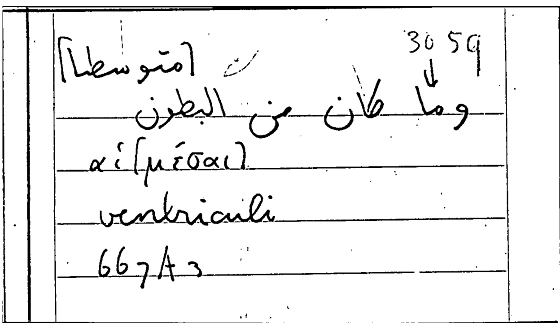 30 59
[متوسطا]
وما كان من البطون
αἱ [μέσαι]
ventriculi
667A3